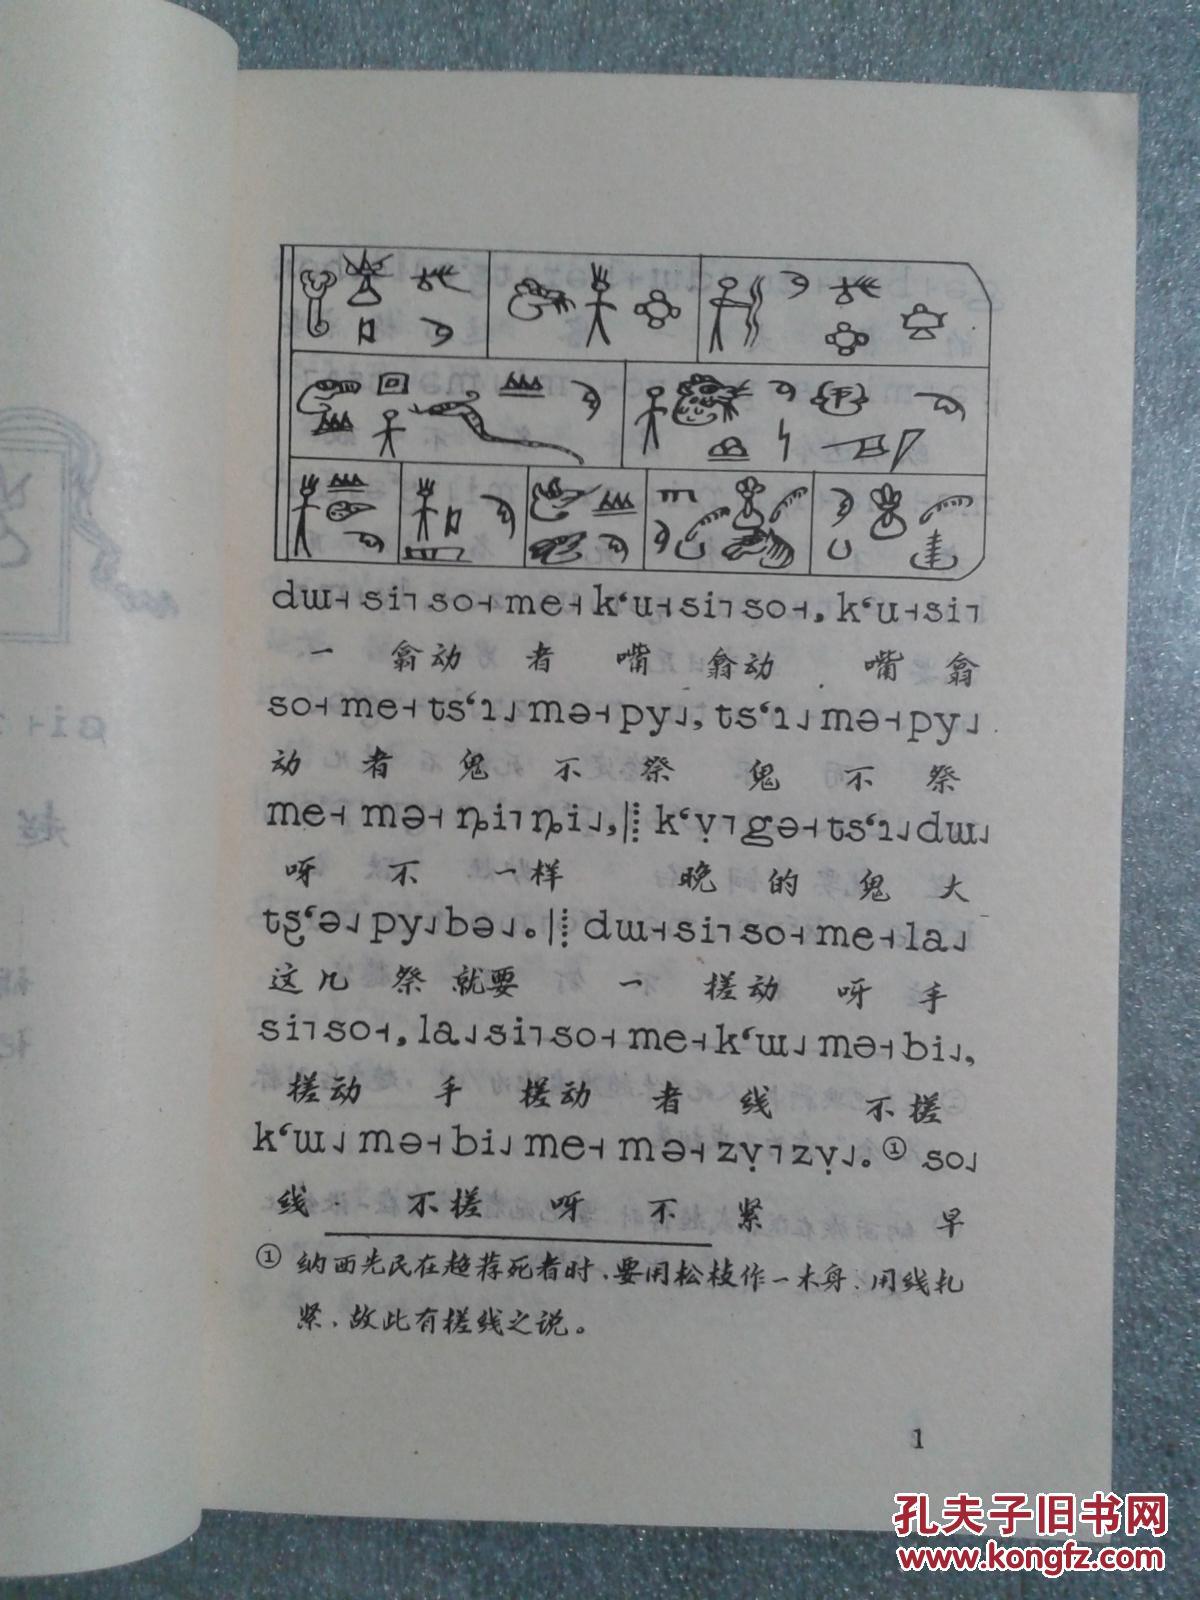 dɯ˧si˥so˧me˧k‘u˧si˥so˧, k‘u˧si˥
一 翕动 者 嘴 翕动 嘴 翕
so˧me˧ts‘ɿ˩mə˧py˩, ts‘ɿ˩mə˧py˩
动 者 鬼 不 祭 鬼 不 祭
me˧mə˧ȵi˥ȵi˩,|⁞k‘v̩˥gə˧ts‘ɿ˩dɯ˩
呀 不 一样 晚 的 鬼 大
tʂ‘ə˩py˩bə˩。|⁞dɯ˧si˥so˧me˧la˩
这几 祭 就要 一 搓动 呀 手
si˥so˧, la˩si˥so˧me˧k‘ɯ˩mə˧bi˩,
搓动 手 搓动 者 线 不搓
k‘ɯ˩mə˧bi˩me˧mə˧zv̩˥zv̩˩。① so˩
线 不搓 呀 不 紧 早
① 纳西先民在超荐死者时、要用松枝作一木身、用线扎
紧、故此有搓线之说。
1
孔夫子旧书网
www.kongfz.com